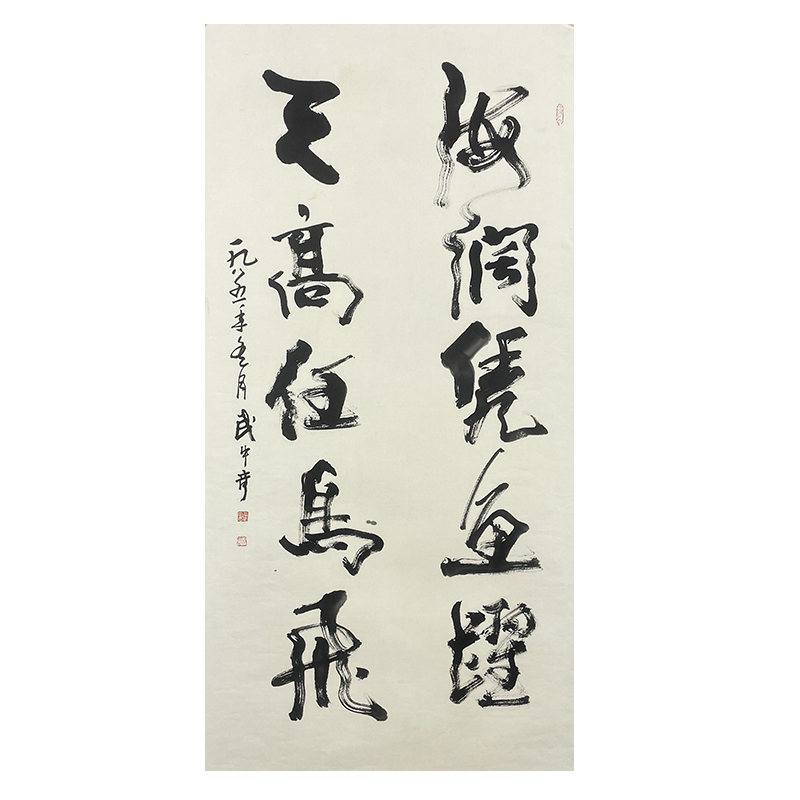 海阔凭鱼躍
天高任鸟飛
一九八五年冬月武中奇